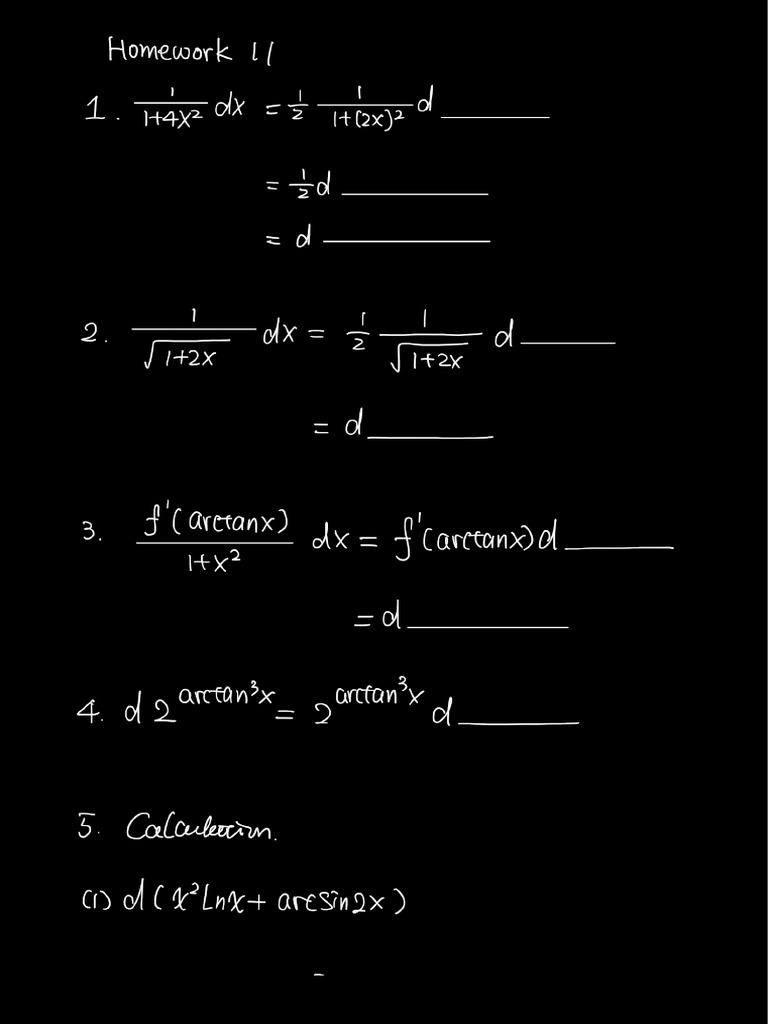 Homework 11
1. \frac{1}{1+4x^2} dx = \frac{1}{2} \frac{1}{1+(2x)^2} d ______
= \frac{1}{2} d ______
= d ______
2. \frac{1}{\sqrt{1+2x}} dx = \frac{1}{2} \frac{1}{\sqrt{1+2x}} d ______
= d ______
3. \frac{f'(arctanx)}{1+x^2} dx = f'(arctanx) d ______
= d ______
4. d 2^{arctan^3x} = 2^{arctan^3x} d ______
5. Calculation.
(1) d(x^2 Lnx + arcsin2x)